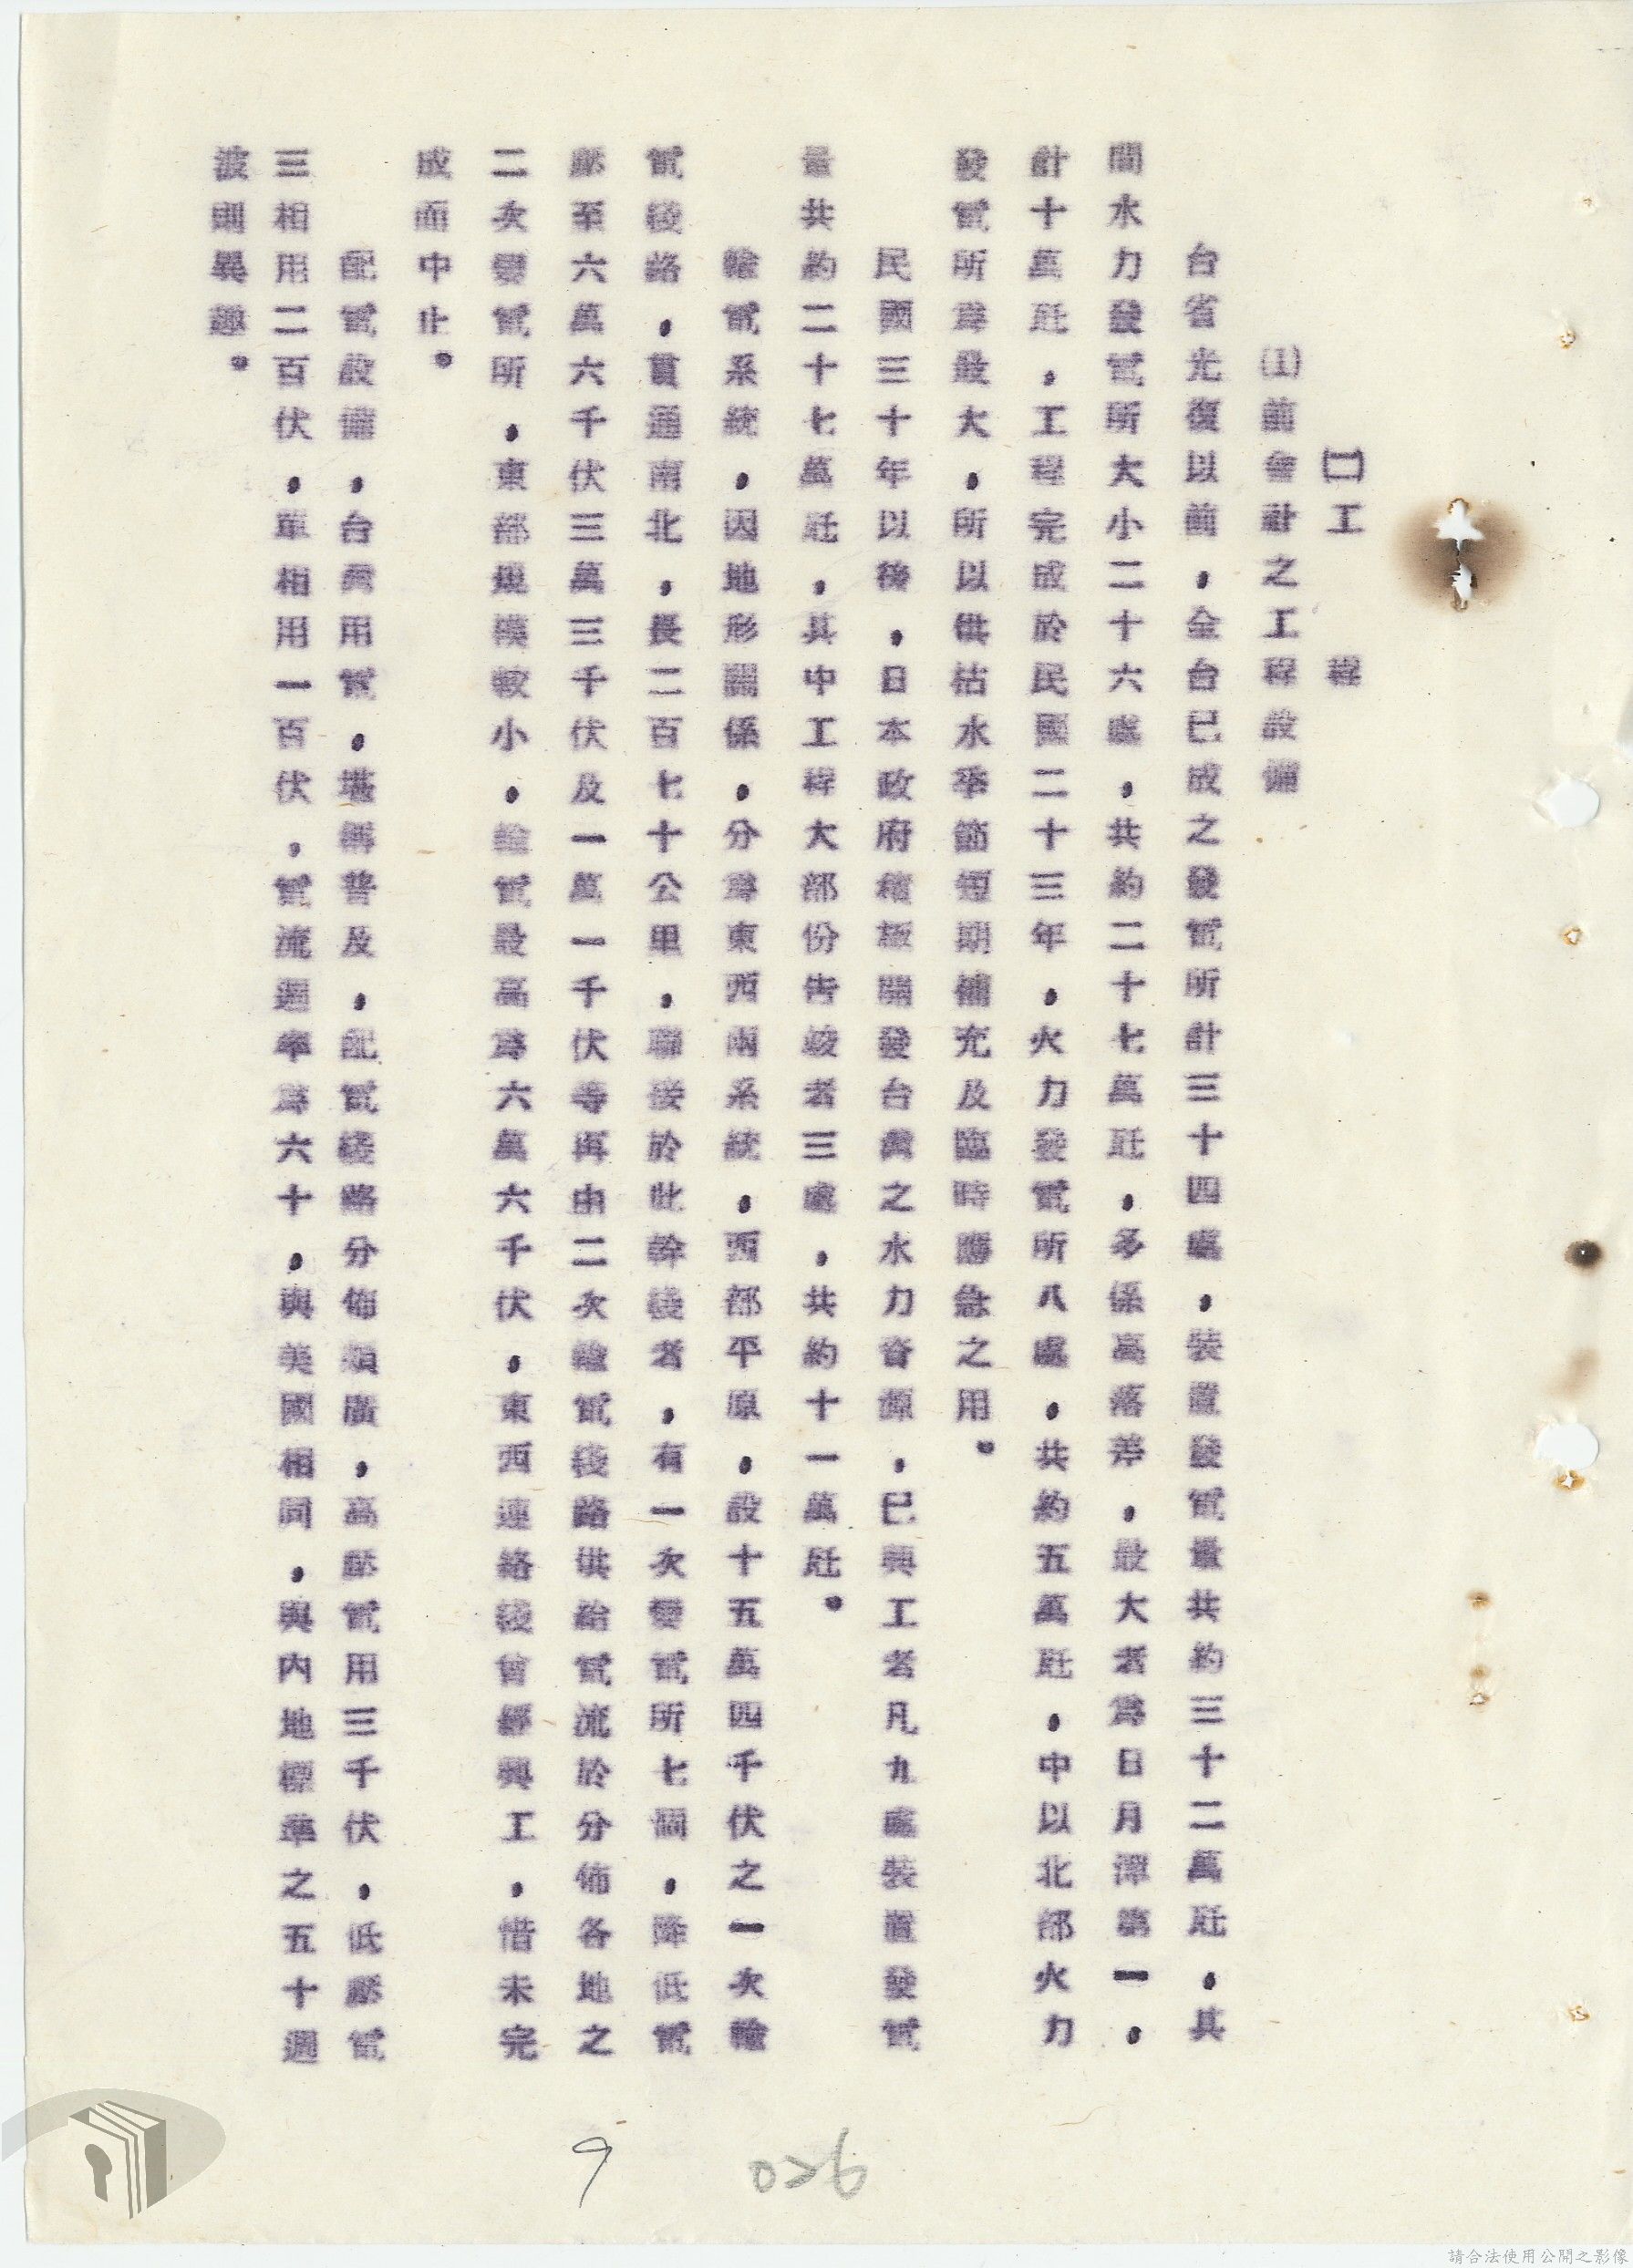 ㈡工程
⑴前會社之工程設備
台省光復以前,全台已成之發電所計三十四處,裝置發電量共約三十二萬瓩,其
間水力發電所大小二十六處,共約二十七萬瓩,多係高落差,最大者為日月潭第一,
計十萬瓩,工程完成於民國二十三年,火力發電所八處,共約五萬瓩,中以北部火力
發電所為最大,所以供枯水季節短期補充及臨時應急之用。
民國三十年以後,日本政府積極開發台灣之水力資源,已興工者凡九處裝置發電
量共約二十七萬瓩,其中工程大部份告竣者三處,共約十一萬瓩。
輸電系統,因地形關係,分為東西兩系統,西部平原,設十五萬四千伏之一次輸
電綫路,貫通南北,長二百七十公里,聯接於此幹綫者,有一次變電所七個,降低電
壓至六萬六千伏三萬三千伏及一萬一千伏等再由二次輸電綫路供給電流於分佈各地之
二次變電所,東部規模較小,輸電最高為六萬六千伏,東西連絡綫曾經興工,惜未完
成而中止。
配電設備,台灣用電,堪稱普及,配電綫路分佈頗廣,高壓電用三千伏,低壓電
三相用二百伏,單相用一百伏,電流週率為六十,與美國相同,與內地標準之五十週
波則異趣。
9
026
請合法使用公開之影像